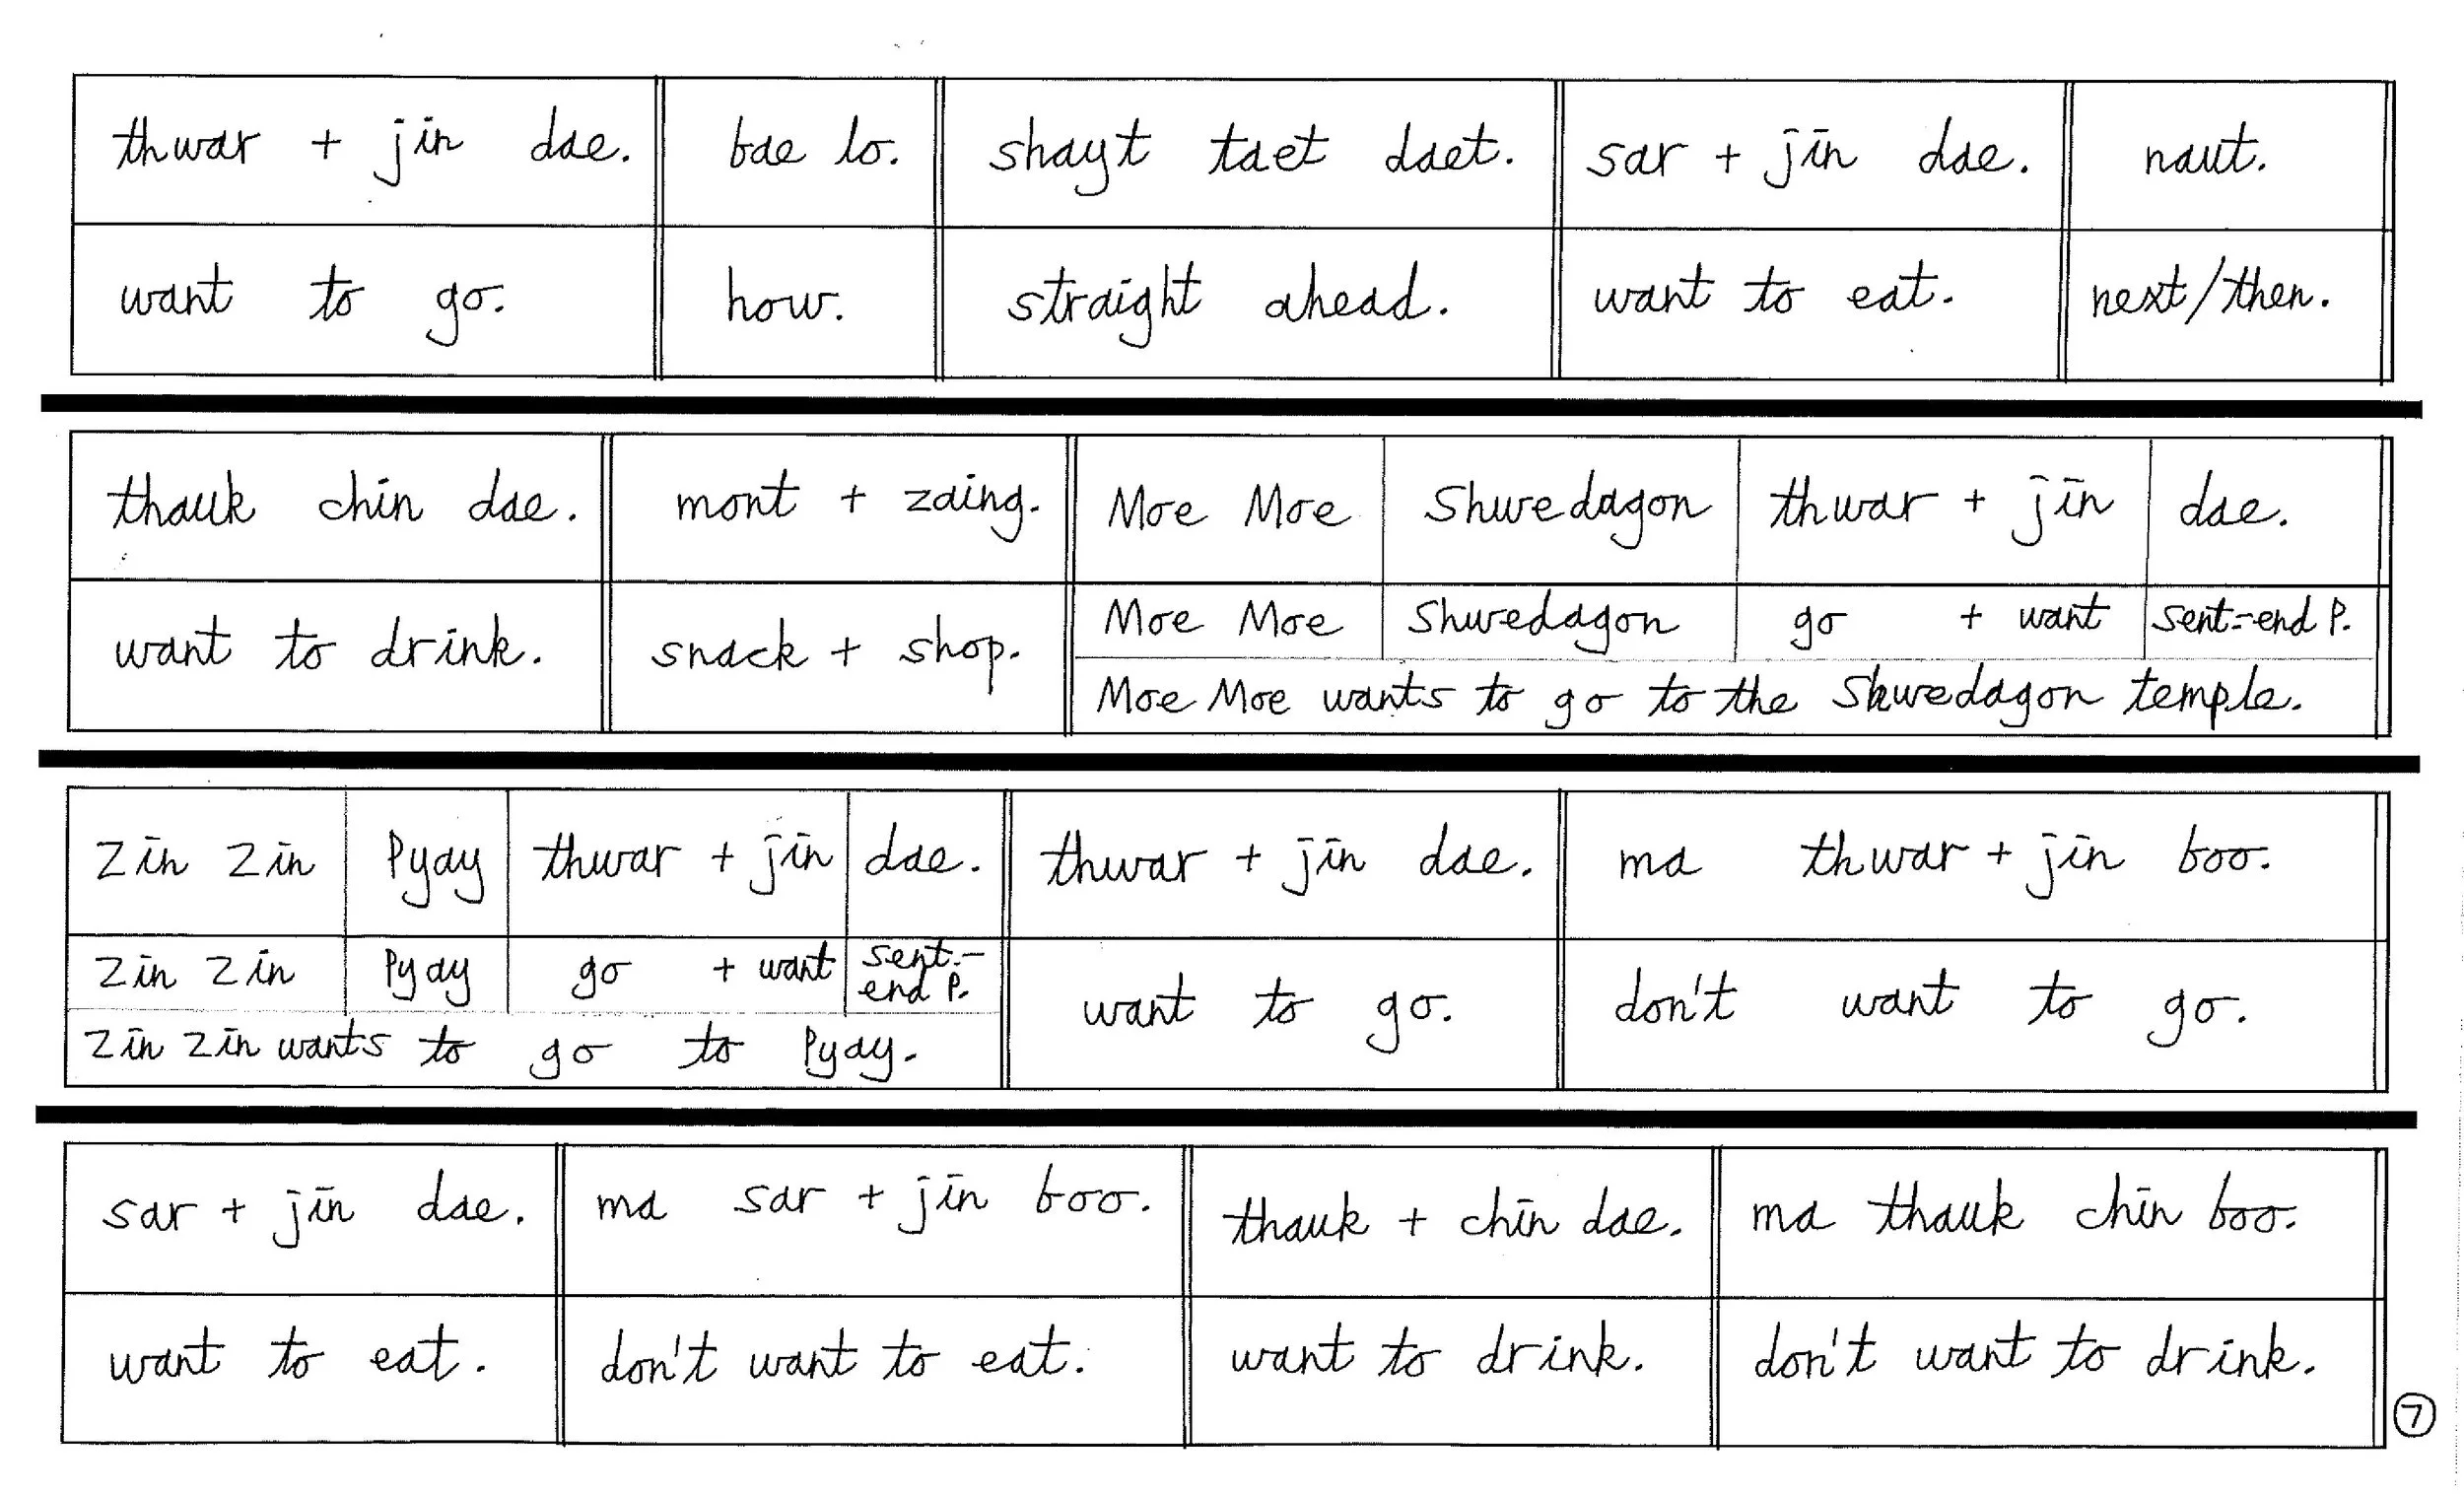 thwar + jin dae. bae lo. shayt taet daet. sar + jin dae. naut.
want to go. how. straight ahead. want to eat. next/then.
thauk chin dae. mont + zaing. Moe Moe Shwedagon thwar + jin dae.
want to drink. snack + shop. Moe Moe Shwedagon go + want sent-end P.
Moe Moe wants to go to the Shwedagon temple.
Zin Zin Pyay thwar + jin dae. thwar + jin dae. ma thwar + jin boo.
Zin Zin Pyay go + want sent.-end P. want to go. don't want to go.
Zin Zin wants to go to Pyay.
sar + jin dae. ma sar + jin boo. thauk + chin dae. ma thauk chin boo.
want to eat. don't want to eat. want to drink. don't want to drink.
7